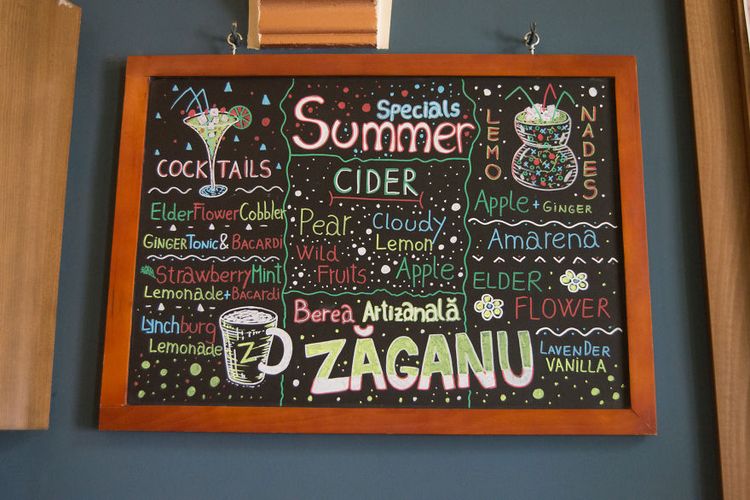 COCKTAILS
ElderFlowerCobbler
GINGERTONIC & BACARDI
StrawberryMint
Lemonade+Bacardi
Lynchburg
Lemonade
Z
Specials
Summer
CIDER
Pear
Cloudy
Lemon
Wild
Fruits
Apple
Berea Artizanală
ZĂGANU
LEMO
NADES
Apple + GINGER
Amarena
ELDER
FLOWER
LAVENDER
VANILLA